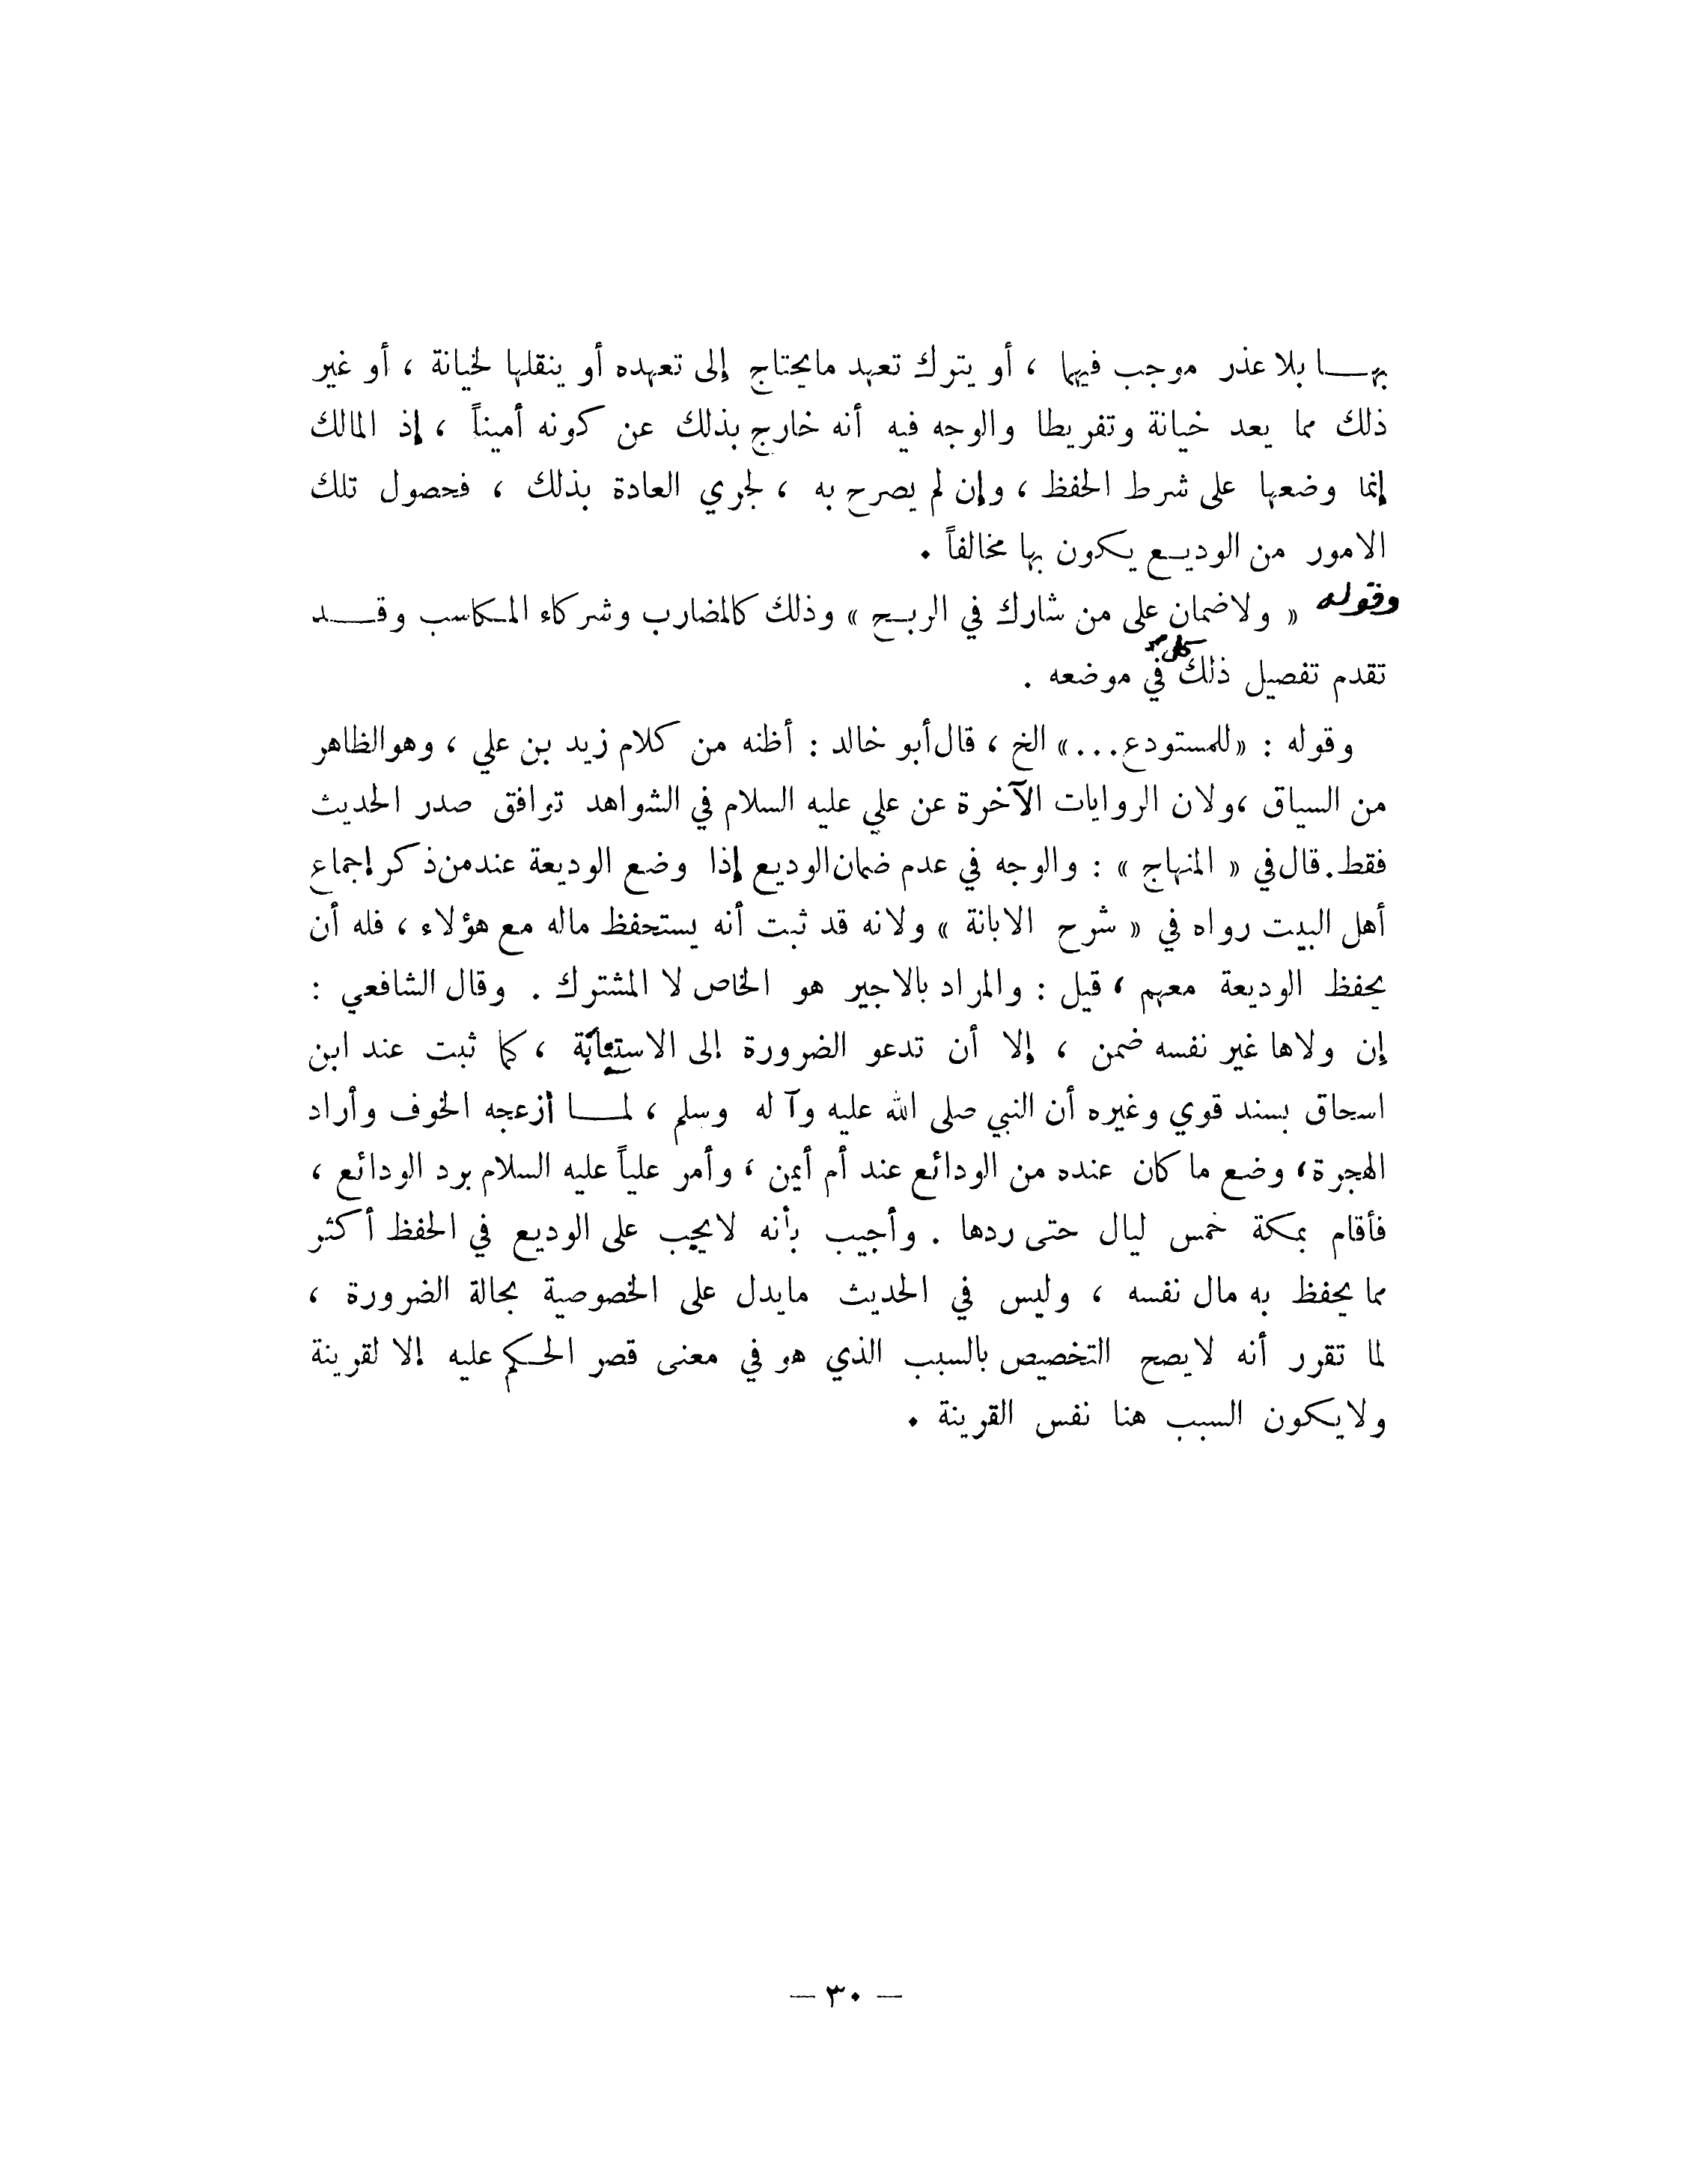 بهـــا بلا عذر موجب فيها ، أو يترك تعهد مايحتاج إلى تعهده أو ينقلها لخيانة ، أو غير
ذلك مما يعد خيانة وتفريطا والوجه فيه أنه خارج بذلك عن كونه أميناً ، إذ المالك
إنما وضعها على شرط الحفظ ، وإن لم يصرح به ، لجري العادة بذلك ، فحصول تلك
الامور من الوديـع يكون بها مخالفاً .
وقوله « ولاضمان على من شارك في الربـح » وذلك كالمضارب وشركاء المكاسب وقـــد
تقدم تفصيل ذلك كل في موضعه .
وقوله : «للمستودع...» الخ ، قال أبو خالد : أظنه من كلام زيد بن علي ، وهوالظاهر
من السياق ،ولان الروايات الآخرة عن علي عليه السلام في الشواهد توافق صدر الحديث
فقط . قال في « المنهاج » : والوجه في عدم ضمان الوديع إذا وضع الوديعة عندمن ذكر إجماع
أهل البيت رواه في « شرح الابانة » ولانه قد ثبت أنه يستحفظ ماله مع هؤلاء ، فله أن
يحفظ الوديعة معهم ، قيل : والمراد بالاجير هو الخاص لا المشترك . وقال الشافعي :
إن ولاها غير نفسه ضمن ، إلا أن تدعو الضرورة إلى الاستنابة ، كما ثبت عند ابن
اسحاق بسند قوي وغيره أن النبي صلى الله عليه وآ له وسلم ، لمـــا أزعجه الخوف وأراد
الهجرة، وضع ما كان عنده من الودائع عند أم أيمن ، وأمر علياً عليه السلام برد الودائع ،
فأقام بمكة خمس ليال حتى ردها . وأجيب بأنه لايجب على الوديع في الحفظ أكثر
مما يحفظ به مال نفسه ، وليس في الحديث مايدل على الخصوصية بحالة الضرورة ،
لما تقرر أنه لايصح التخصيص بالسبب الذي هو في معنى قصر الحكم عليه إلا لقرينة
ولايكون السبب هنا نفس القرينة .
— ٣٠ —